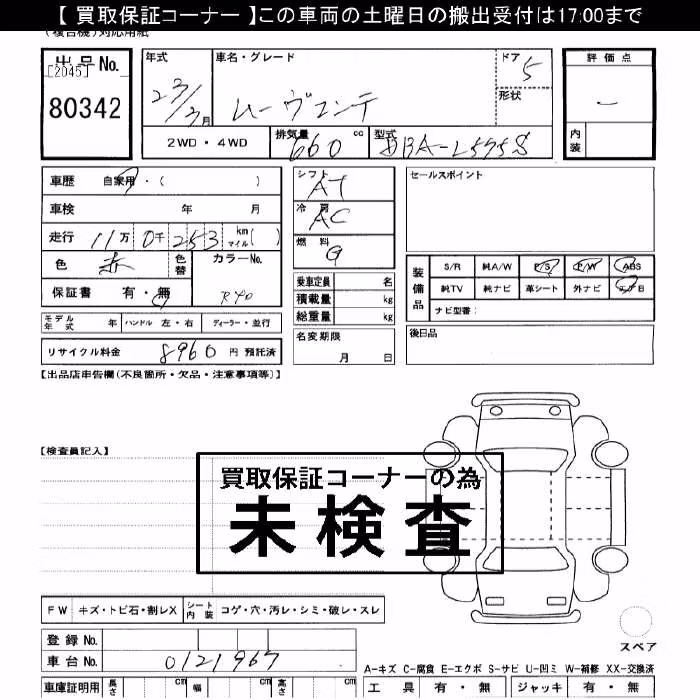 【 買取保証コーナー 】この車両の土曜日の搬出受付は17:00まで
(複合機)対応用紙
出品No.
[2045]
80342
年式
23/3月
車名・グレード
ムーヴコンテ
ドア
5
形状
2WD・4WD
排気量
660 cc
型式
DBA-L575S
評価点
－
内装
車歴 自家用・( )
車検 年 月
走行 11万 0千 253 km マイル( )
色 赤 色替 カラーNo.
保証書 有・無 R40
モデル年式 年 ハンドル 左・右 ディーラー・並行
リサイクル料金 8960 円 預託済
シフト
AT
冷房
AC
燃料
G
乗車定員 名
積載量 kg
総重量 kg
名変期限
月 日
セールスポイント
装備品
S/R 純A/W P/S P/W ABS
純TV 純ナビ 革シート 外ナビ エアB
ナビ型番:
後日品
【出品店申告欄(不良箇所・欠品・注意事項等)】
【検査員記入】
買取保証コーナーの為
未検査
FW キズ・トビ石・割レX シート内装 コゲ・穴・汚レ・シミ・破レ・スレ
登録No.
車台No. 0121967
車庫証明用 長さ cm 幅 cm 高さ cm
スペア
A-キズ C-腐食 E-エクボ S-サビ U-凹ミ W-補修 XX-交換済
工具 有・無 ジャッキ 有・無